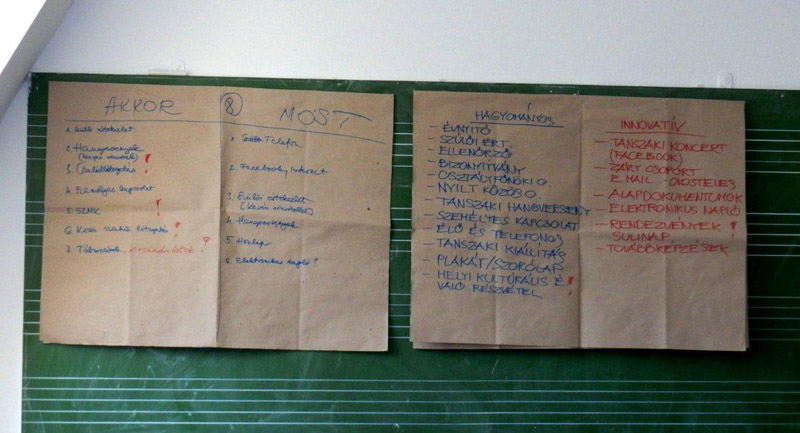 AKKOR
8
MOST
1. Szülői értekezlet
2. Hangversenyek
3.
4. Személyes kapcsolat
5. SZMK
6.
7.
1. Telefon
2. Facebook, internet
3. Szülői értekezlet
4. Hangversenyek
5. Honlap
6. Elektronikus napló?
HAGYOMÁNYOS
- ÉVNYITÓ
- SZÜLŐI ÉRT.
- ELLENŐRZŐ
- BIZONYÍTVÁNY
- OSZTÁLYFŐNÖKI Ó
- NYILT KÖZÖS Ó
- TANSZAKI HANGVERSENY
- SZEMÉLYES KAPCSOLAT
ÉLŐ ÉS TELEFONOS
- TANSZAKI KIÁLLÍTÁS
- PLAKÁT/SZÓRÓLAP
- HELYI KULTÚRÁLIS É
VALÓ RÉSZVÉTEL !
INNOVATÍV
- TANSZAKI KONCERT
(FACEBOOK)
- ZÁRT CSOPORT
E-MAIL - OKOSTELEF
- ALAPDOKUMENTUMOK
- ELEKTRONIKUS NAPLÓ
- RENDEZVÉNYEK !
SULINAP,
- TOVÁBBKÉPZÉSEK